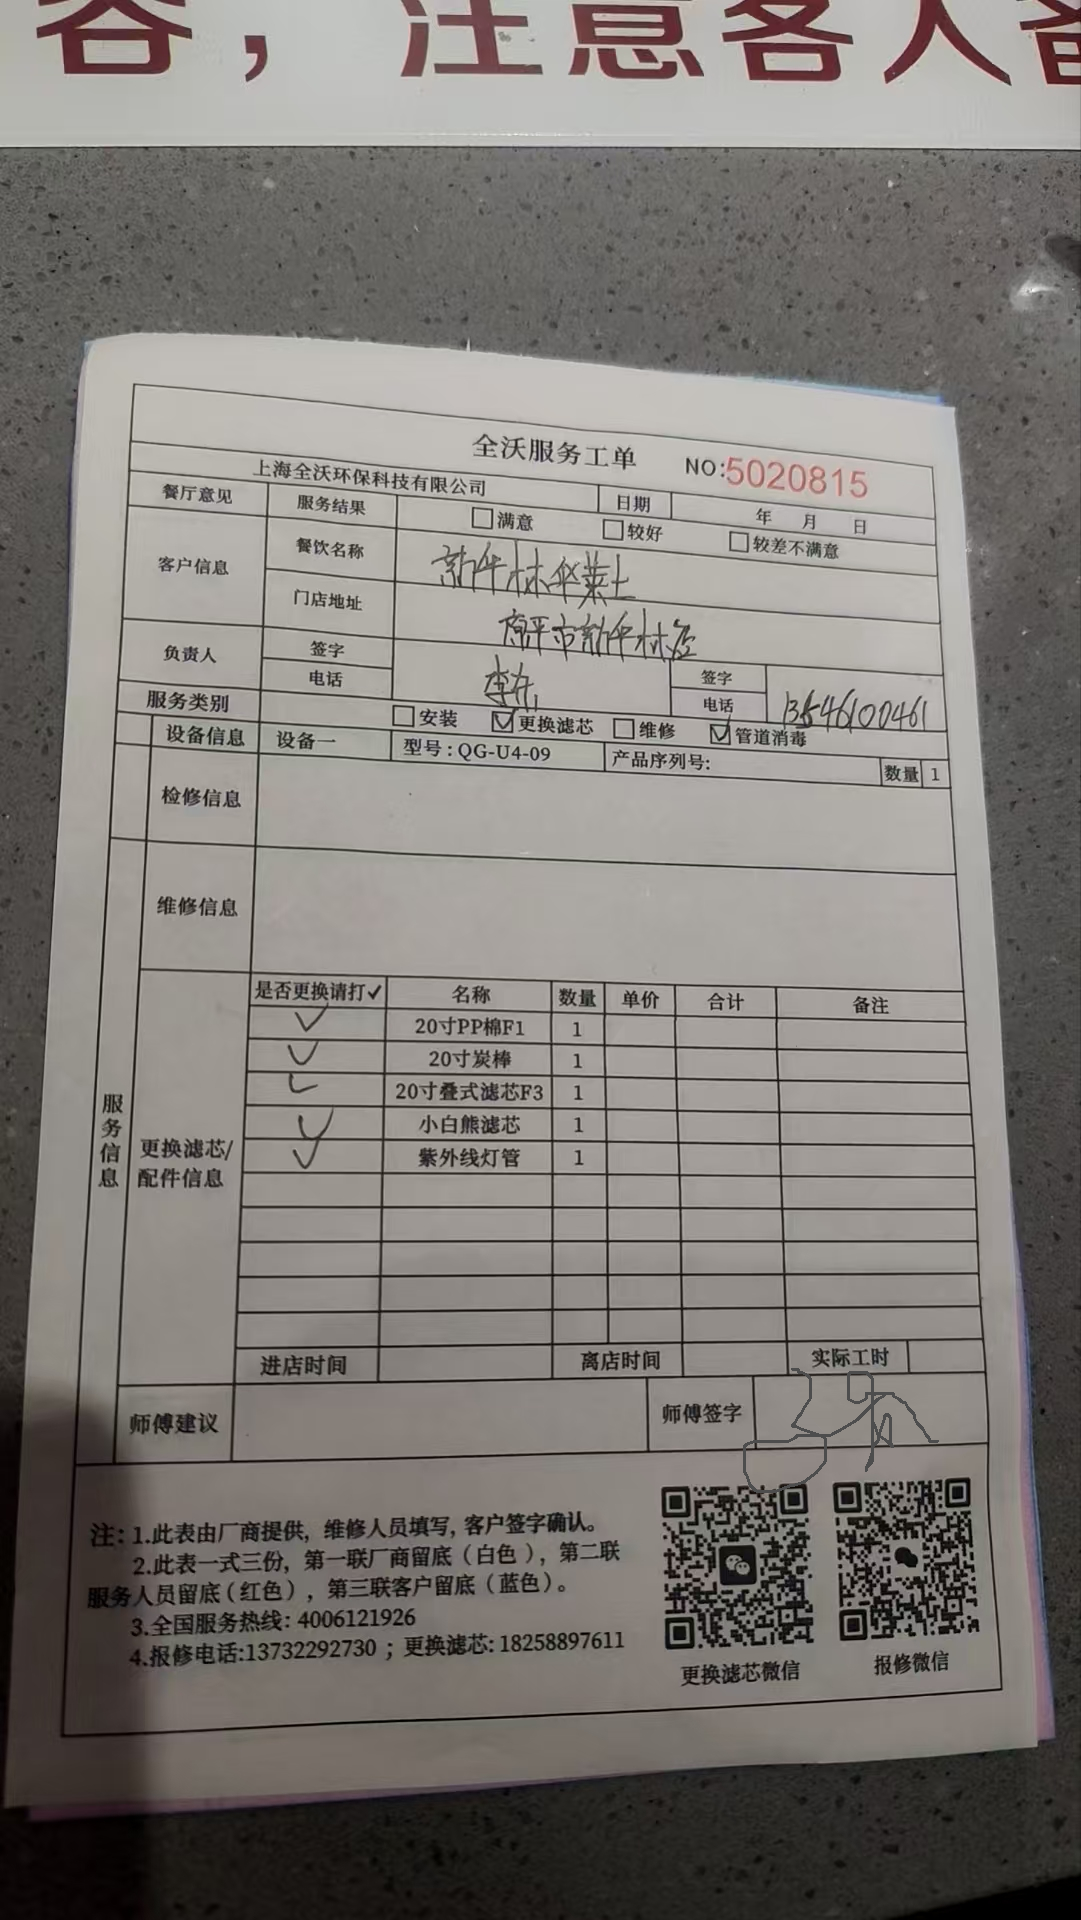 容，注意客人备
全沃服务工单 NO:5020815
上海全沃环保科技有限公司 日期 年 月 日
餐厅意见 服务结果 □满意 □较好 □较差不满意
客户信息 餐饮名称 新平林华莱士
门店地址 原平市新平林
负责人 签字 签字
电话 电话 13546100461
服务类别 □安装 ☑更换滤芯 □维修 ☑管道消毒
设备信息 设备一 型号:QG-U4-09 产品序列号: 数量 1
检修信息
维修信息
服务信息
更换滤芯/配件信息
是否更换请打✓ 名称 数量 单价 合计 备注
✓ 20寸PP棉F1 1
✓ 20寸炭棒 1
✓ 20寸叠式滤芯F3 1
✓ 小白熊滤芯 1
✓ 紫外线灯管 1
进店时间 离店时间 实际工时
师傅建议 师傅签字
注: 1.此表由厂商提供, 维修人员填写, 客户签字确认。
2.此表一式三份, 第一联厂商留底（白色）, 第二联
服务人员留底(红色）, 第三联客户留底（蓝色）。
3.全国服务热线: 4006121926
4.报修电话:13732292730 ; 更换滤芯: 18258897611
更换滤芯微信 报修微信